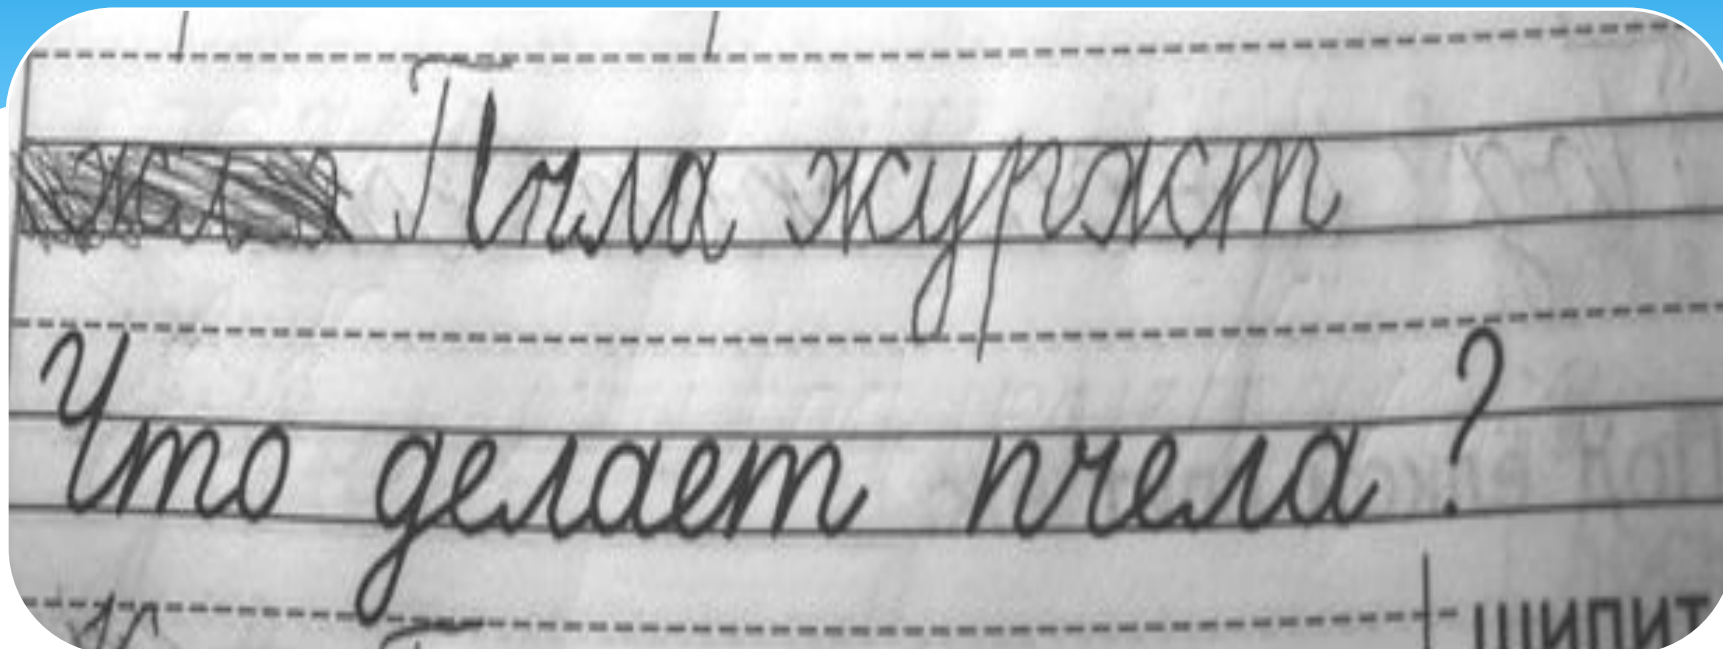 Пчла журжт
Что делает пчела?
шипит